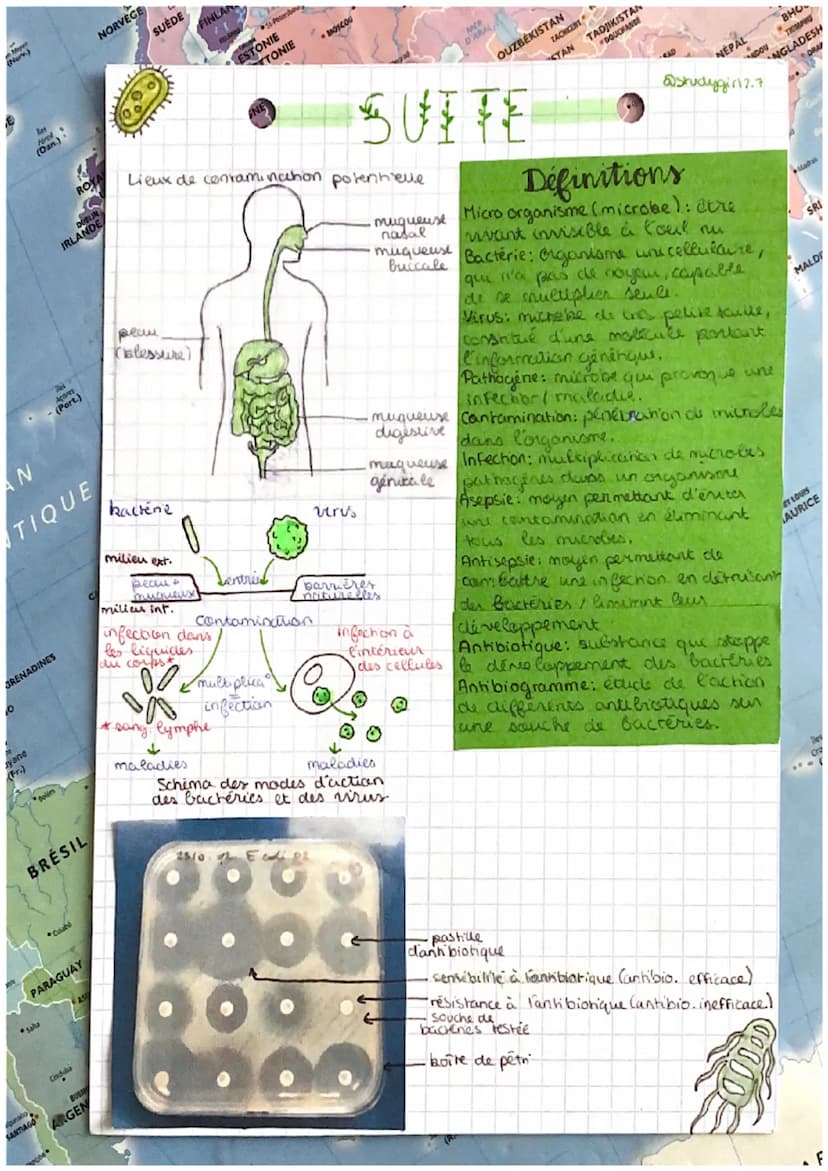 @studygirl2.7
SUITE
Lieux de contamination potentielle
muqueuse
nasal
muqueuse
buccale
peau
(blessure)
muqueuse
digestive
muqueuse
génitale
Définitions
Micro organisme (microbe) : être
vivant invisible à l'oeil nu
Bactérie : Organisme unicellulaire,
qui n'a pas de noyau, capable
de se multiplier seule.
Virus : microbe de très petite taille,
constitué d'une molécule portant
l'information génétique.
Pathogène : microbe qui provoque une
infection / maladie.
Contamination : pénétration de microbes
dans l'organisme.
Infection : multiplication de microbes
pathogènes dans un organisme
Asepsie : moyen permettant d'éviter
une contamination en éliminant
tous les microbes.
Antisepsie : moyen permettant de
combattre une infection en détruisant
des bactéries / limitant leur
développement
Antibiotique : substance qui stoppe
le développement des bactéries
Antibiogramme : étude de l'action
de différents antibiotiques sur
une souche de bactéries.
bactérie
virus
milieu ext.
peau +
muqueux
entrée
barrières
naturelles
milieu int.
contamination
infection dans
les liquides
du corps*
infection à
l'intérieur
des cellules
multiplica°
=
infection
* sang, lymphe
maladies
maladies
Schéma des modes d'action
des bactéries et des virus
E coli
pastille
d'antibiotique
sensibilité à l'antibiotique (antibio. efficace)
résistance à l'antibiotique (antibio. inefficace)
souche de
bactéries testée
boîte de pétri
NORVÈGE
SUÈDE
FINLAN
ESTONIE
MOSCOU
OUZBÉKISTAN
TADJIKISTAN
NÉPAL
IRLANDE
ATIQUE
GRENADINES
BRÉSIL
PARAGUAY
SANTIAGO
Córdoba